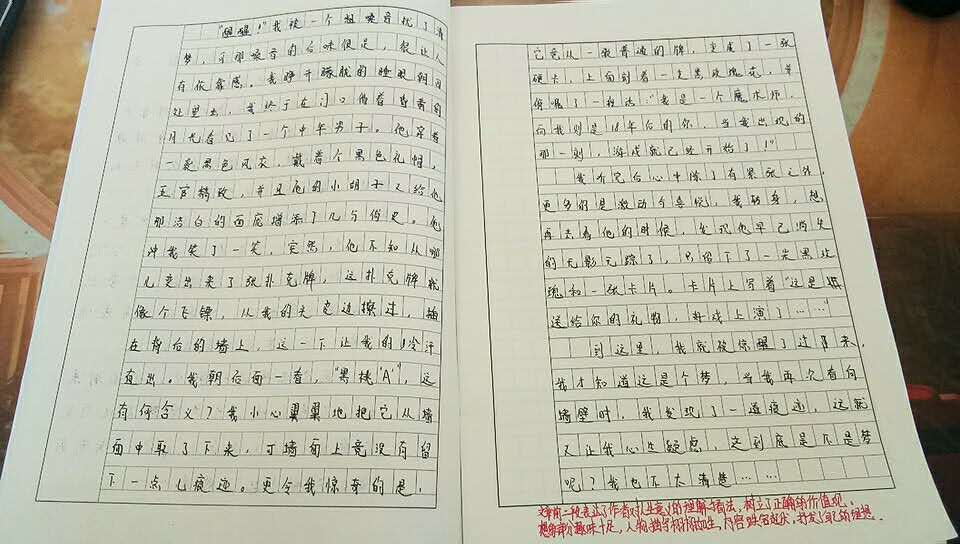 “醒醒！”我被一个粗嗓音扰了清
梦，可那嗓音的后味很足，很让人
有依靠感。我睁开朦胧的睡眼朝四
处望去，我终于在门口借着昏黄的
月光看见了一个中年男子。他穿着
一袭黑色风衣，戴着个黑色礼帽，
五官精致，并且他的小胡子又给他
那洁白的面庞增添了几分俏皮。他
冲我笑了一笑，突然，他不知从哪
儿变出来了张扑克牌，这扑克牌就
像个飞镖，从我的头边擦过，插
在背后的墙上，这一下让我的冷汗
直出。我朝后面一看，“黑桃‘A’，这
有何含义”？我小心翼翼地把它从墙
面中取了下来，可墙面上竟没有留
下一点儿痕迹。更令我惊奇的是，
它竟从一张普通的牌，变成了一张
硬卡，上面刻着一支黑玫瑰花，并
写了一段话：“我是一个魔术师，
而我则是18年后的你，当我出现的
那一刻，游戏就已经开始了！”
我听完后心中除了有紧张之外，
更多的是激动与喜悦，我转身，想
再去看他的时候，发现他早已消失
的无影无踪了，只留下了一朵黑玫
瑰和一张卡片。卡片上写着“这是
送给你的礼物，好戏上演了……”
到这里，我就被惊醒了过来，
我才知道这是个梦，当我再次看向
墙壁时，我发现了一道痕迹，这就
又让我心生疑虑，这到底是不是梦
呢？我也不大清楚……
文章前一段表达了作者对人生意义的理解与看法，树立了正确的价值观。
想象部分趣味十足，人物描写栩栩如生，内容跌宕起伏，抒发了自己的理想。